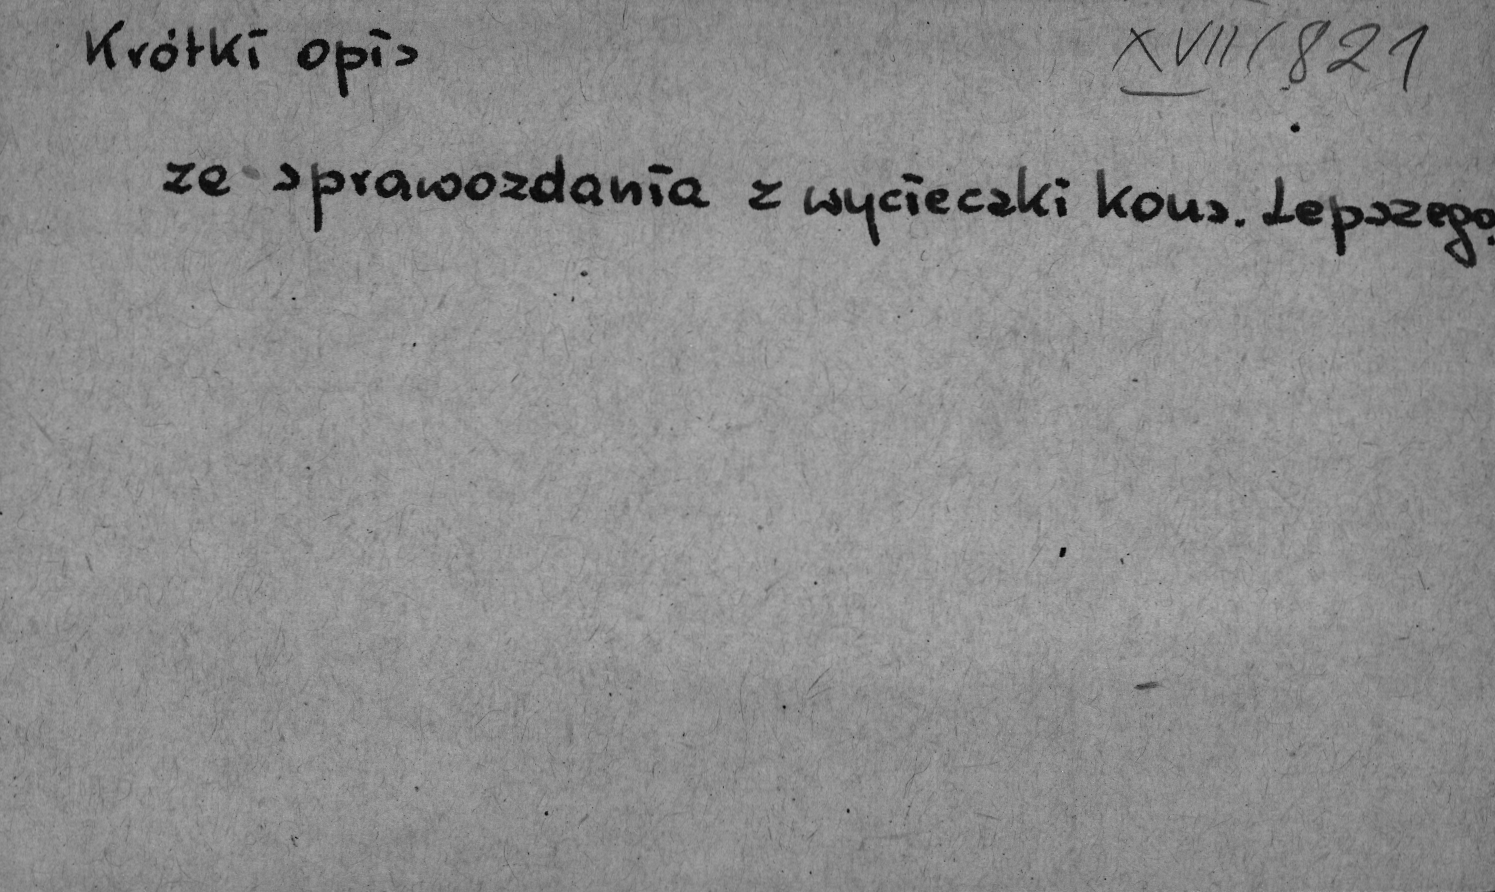 Krótki opis
XVII/821
ze sprawozdania z wycieczki kons. Lepszego.